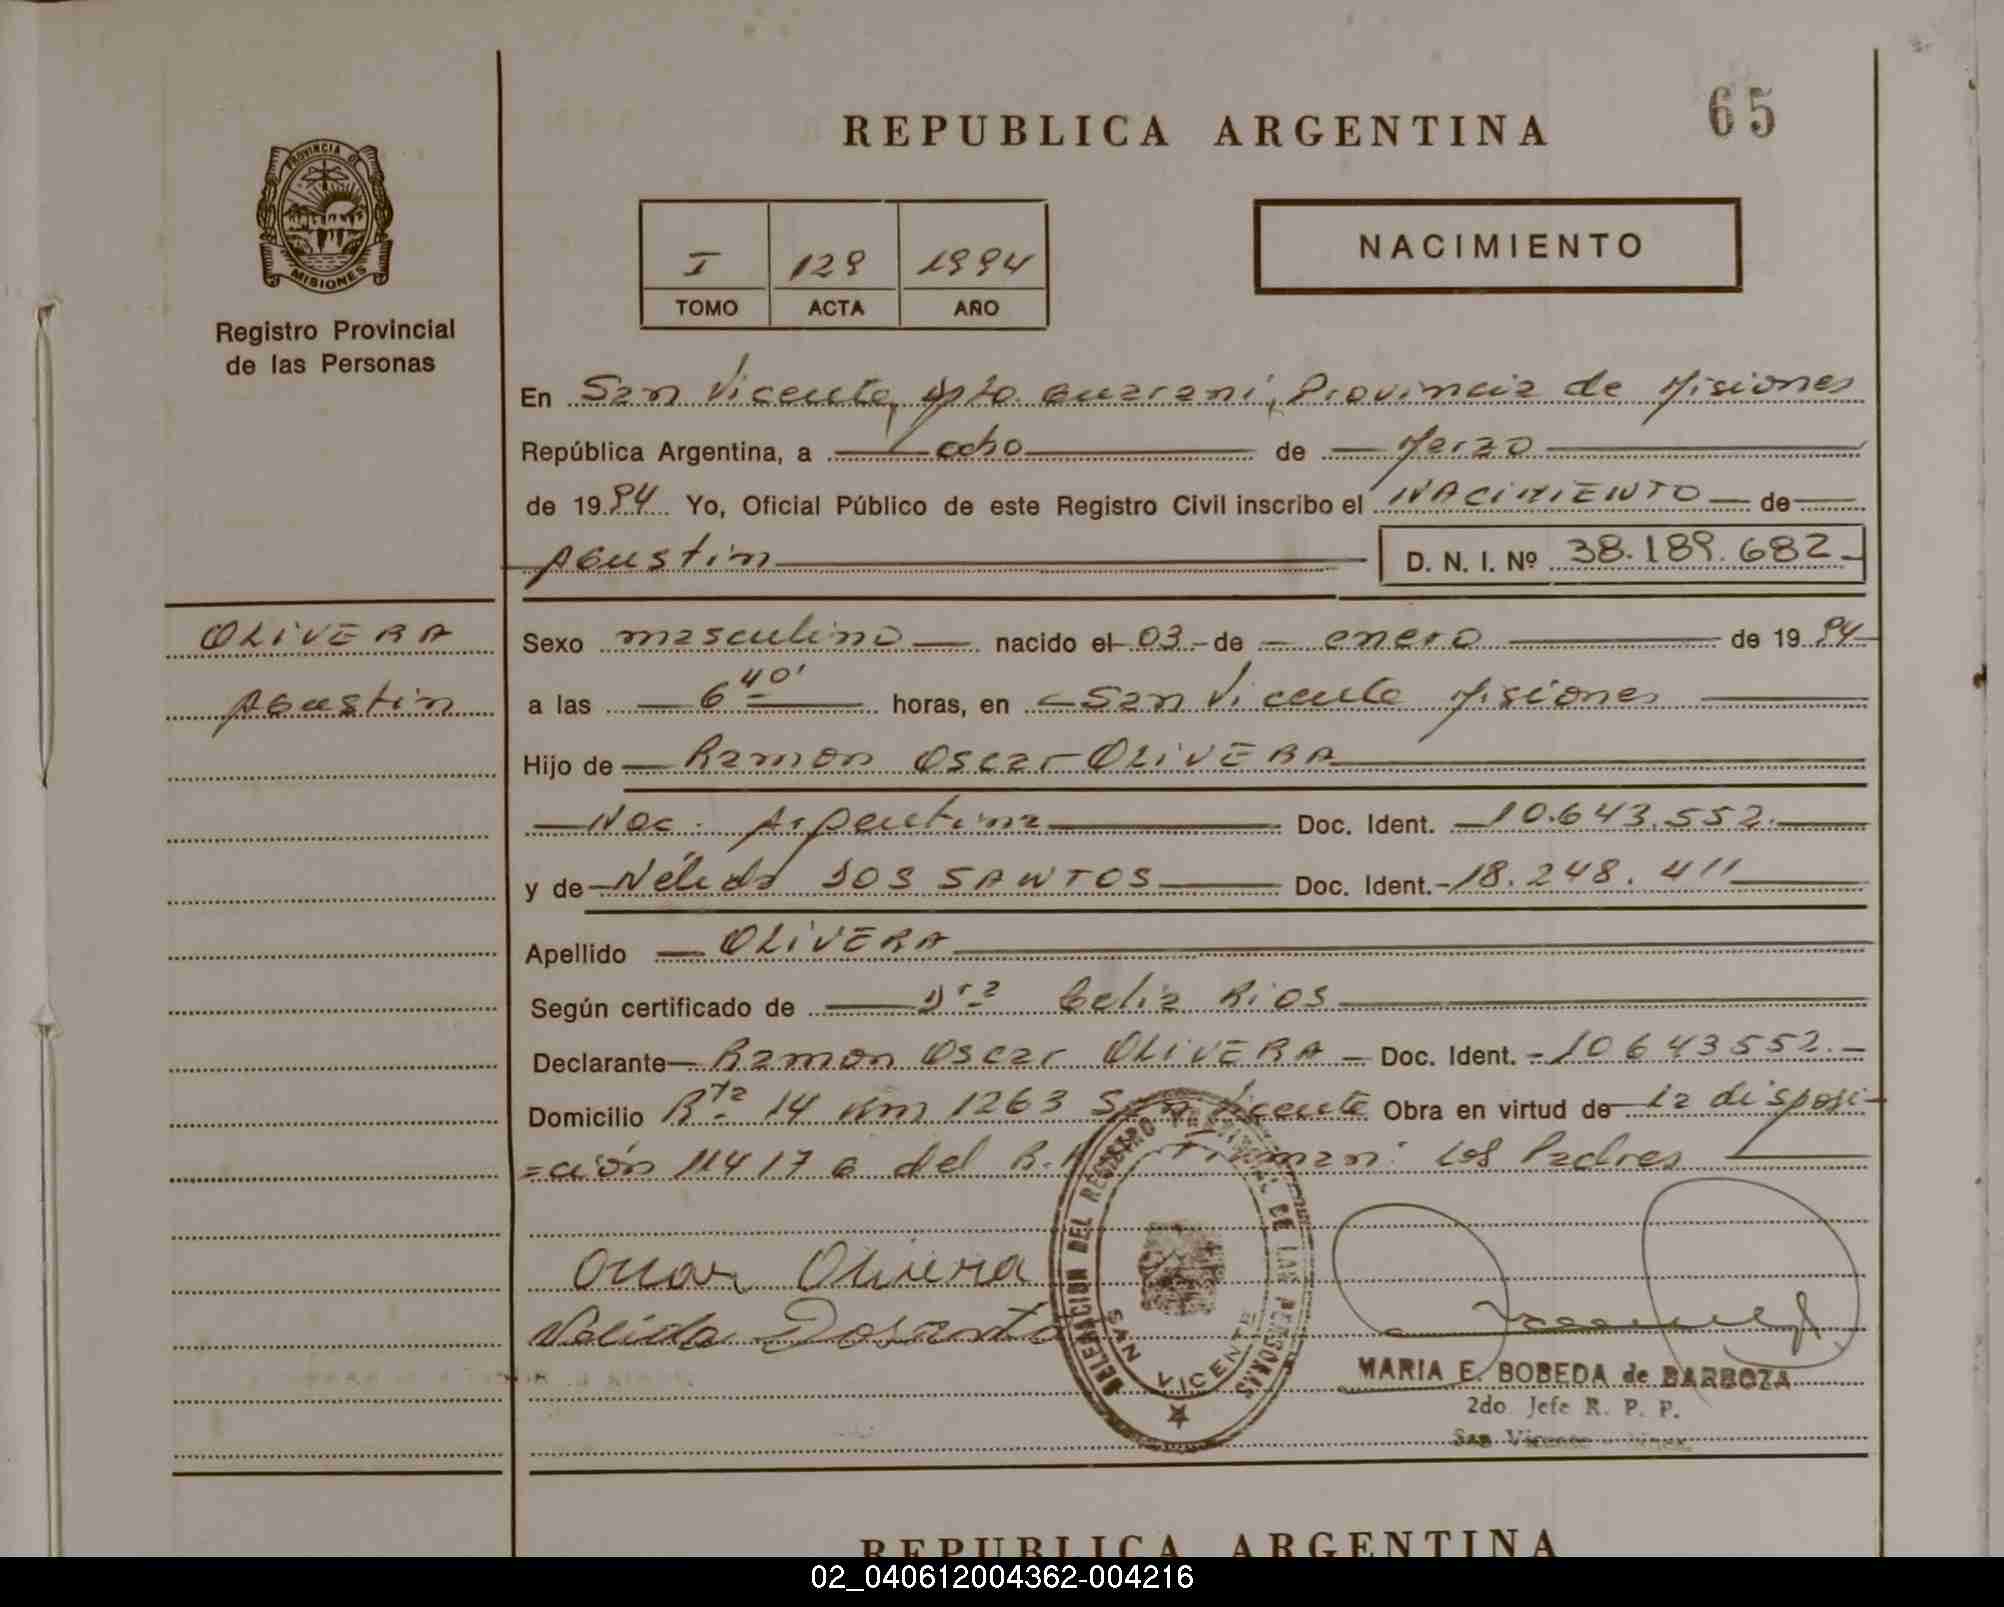 REPUBLICA ARGENTINA
65
PROVINCIA DE
MISIONES
Registro Provincial
de las Personas
I 129 1994
TOMO ACTA AÑO
NACIMIENTO
En San Vicente, Dpto Guaraní, Provincia de Misiones
República Argentina, a ocho de Marzo
de 1994 Yo, Oficial Público de este Registro Civil inscribo el NACIMIENTO de
Agustin D. N. I. Nº 38.189.682.-
OLIVERA
Agustin
Sexo masculino nacido el 03 de enero de 1994
a las 6 40' horas, en San Vicente Misiones
Hijo de Ramon Oscar OLIVERA
Nac. Argentina Doc. Ident. 10.643.552.
y de Nélida DOS SANTOS Doc. Ident. 18.248.411
Apellido OLIVERA
Según certificado de Dra Celia Rios
Declarante Ramon Oscar OLIVERA Doc. Ident. 10643552.-
Domicilio Rta 14 Km 1263 San Vicente Obra en virtud de la disposi-
=ción 11417 del Firman: los Padres
Oscar Olivera
Nelida Dosanto
DELEGACION DEL REGISTRO PROVINCIAL DE LAS PERSONAS
SAN VICENTE
MARIA E. BOBEDA de BARBOZA
2do Jefe R. P. P.
San Vicente
REPUBLICA ARGENTINA
02_040612004362-004216